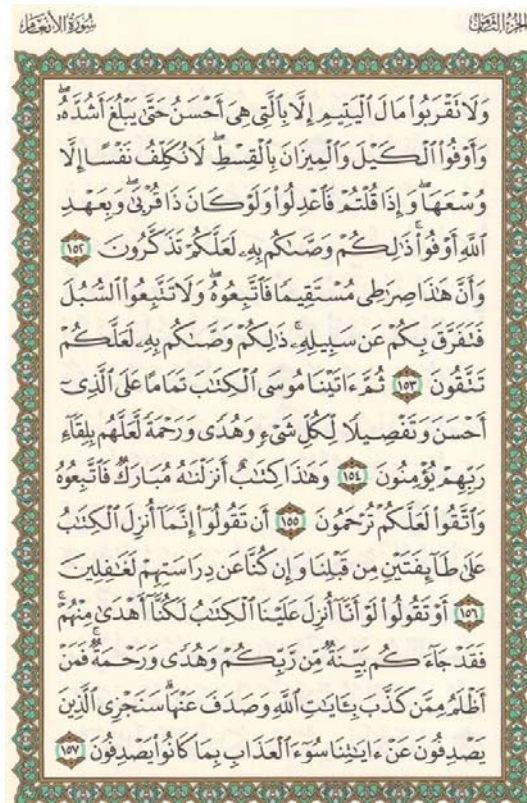 الجزء الثامن
سورة الأنعام
وَلَا تَقْرَبُوا۟ مَالَ ٱلْيَتِيمِ إِلَّا بِٱلَّتِى هِىَ أَحْسَنُ حَتَّىٰ يَبْلُغَ أَشُدَّهُۥۖ
وَأَوْفُوا۟ ٱلْكَيْلَ وَٱلْمِيزَانَ بِٱلْقِسْطِۖ لَا نُكَلِّفُ نَفْسًا إِلَّا
وُسْعَهَاۖ وَإِذَا قُلْتُمْ فَٱعْدِلُوا۟ وَلَوْ كَانَ ذَا قُرْبَىٰۖ وَبِعَهْدِ
ٱللَّهِ أَوْفُوا۟ۚ ذَٰلِكُمْ وَصَّىٰكُم بِهِۦ لَعَلَّكُمْ تَذَكَّرُونَ ١٥٢
وَأَنَّ هَٰذَا صِرَٰطِى مُسْتَقِيمًا فَٱتَّبِعُوهُۖ وَلَا تَتَّبِعُوا۟ ٱلسُّبُلَ
فَتَفَرَّقَ بِكُمْ عَن سَبِيلِهِۦۚ ذَٰلِكُمْ وَصَّىٰكُم بِهِۦ لَعَلَّكُمْ
تَتَّقُونَ ١٥٣ ثُمَّ ءَاتَيْنَا مُوسَى ٱلْكِتَٰبَ تَمَامًا عَلَى ٱلَّذِىٓ
أَحْسَنَ وَتَفْصِيلًا لِّكُلِّ شَىْءٍ وَهُدًى وَرَحْمَةً لَّعَلَّهُم بِلِقَآءِ
رَبِّهِمْ يُؤْمِنُونَ ١٥٤ وَهَٰذَا كِتَٰبٌ أَنزَلْنَٰهُ مُبَارَكٌ فَٱتَّبِعُوهُ
وَٱتَّقُوا۟ لَعَلَّكُمْ تُرْحَمُونَ ١٥٥ أَن تَقُولُوٓا۟ إِنَّمَآ أُنزِلَ ٱلْكِتَٰبُ
عَلَىٰ طَآئِفَتَيْنِ مِن قَبْلِنَا وَإِن كُنَّا عَن دِرَاسَتِهِمْ لَغَٰفِلِينَ
١٥٦ أَوْ تَقُولُوا۟ لَوْ أَنَّآ أُنزِلَ عَلَيْنَا ٱلْكِتَٰبُ لَكُنَّآ أَهْدَىٰ مِنْهُمْۚ
فَقَدْ جَآءَكُم بَيِّنَةٌ مِّن رَّبِّكُمْ وَهُدًى وَرَحْمَةٌۚ فَمَنْ
أَظْلَمُ مِمَّن كَذَّبَ بِـَٔايَٰتِ ٱللَّهِ وَصَدَفَ عَنْهَاۗ سَنَجْزِى ٱلَّذِينَ
يَصْدِفُونَ عَنْ ءَايَٰتِنَا سُوٓءَ ٱلْعَذَابِ بِمَا كَانُوا۟ يَصْدِفُونَ ١٥٧